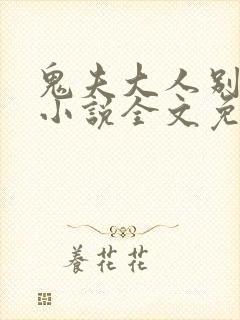 鬼夫大人别
小說全文免
養花花